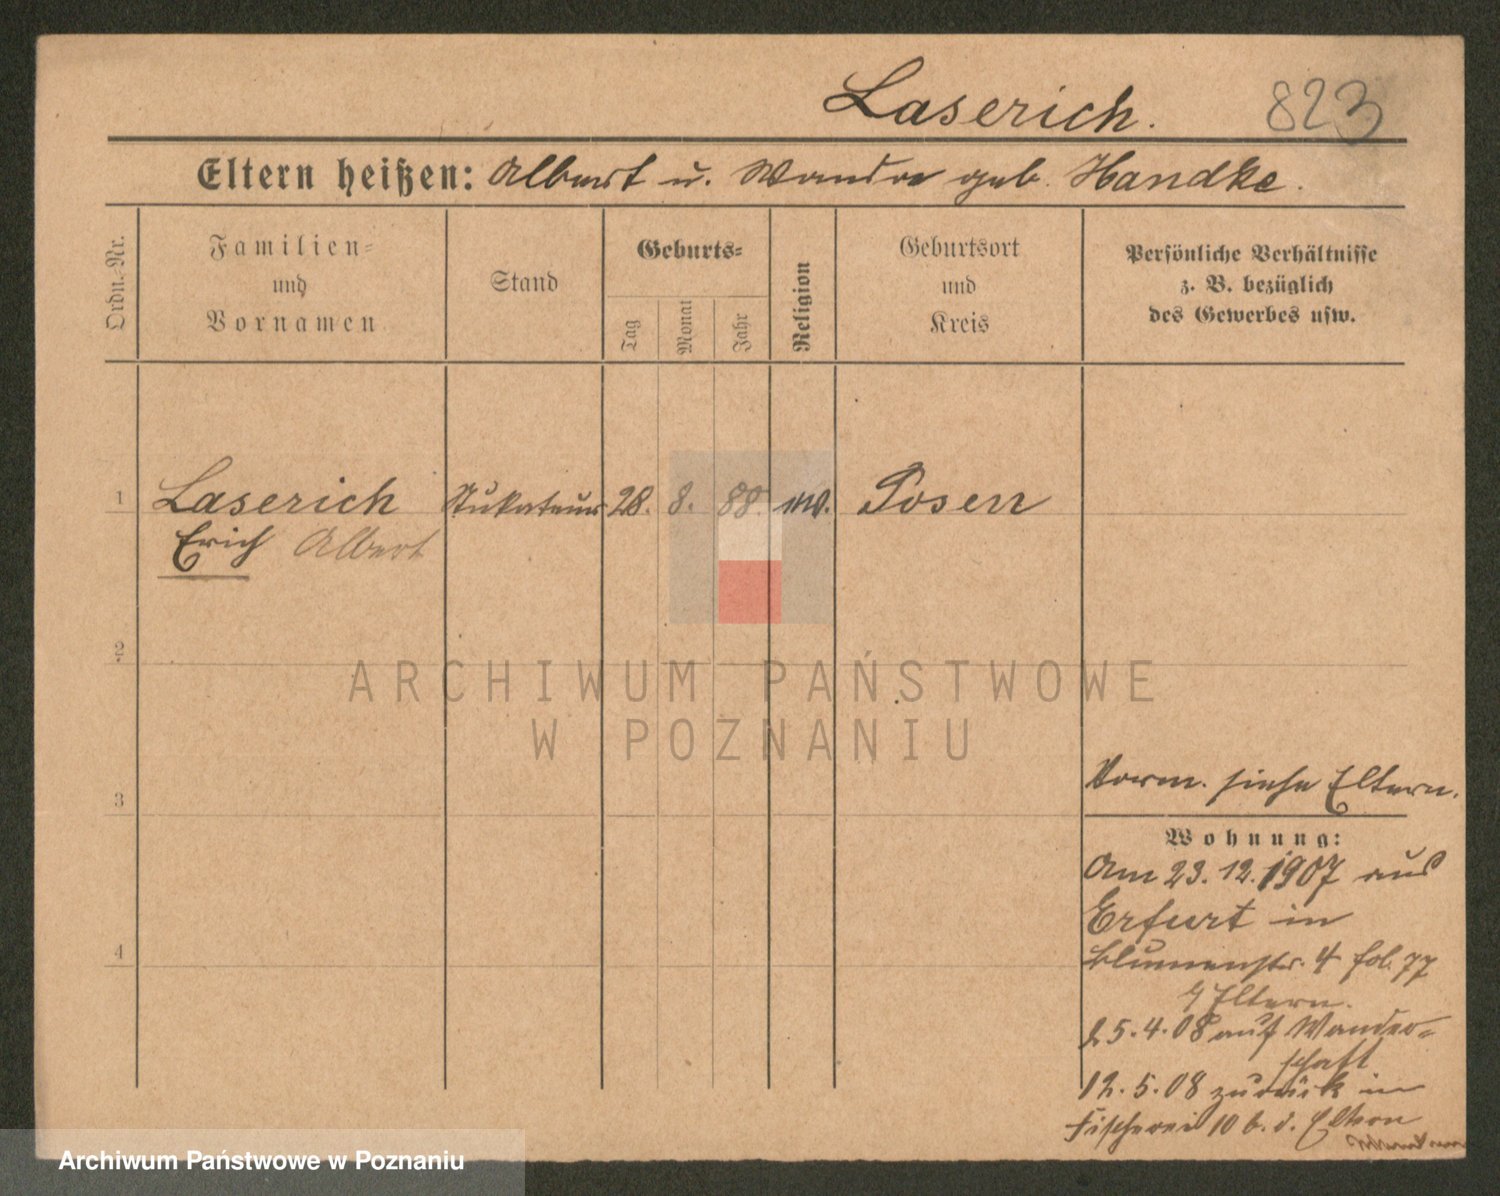 Laserich. 823
Eltern heißen: Albert u. Wanda geb. Handke.
Ordn.-Nr.
Familien-
und
Vornamen
Stand
Geburts-
Tag
Monat
Jahr
Religion
Geburtsort
und
Kreis
Persönliche Verhältnisse
z. B. bezüglich
des Gewerbes usw.
1 Laserich Stukateur 28. 8. 88. ev. Posen
Erich Albert
2
ARCHIWUM PAŃSTWOWE
W POZNANIU
3
Vorm. siehe Eltern.
Wohnung:
Am 23.12.1907 aus
Erfurt in
Blumenstr. 4 fol. 77
b/ Eltern.
4
25.4.08 auf Wander-
schaft
12.5.08 zurück in
Fischerei 10 b. d. Eltern
Archiwum Państwowe w Poznaniu